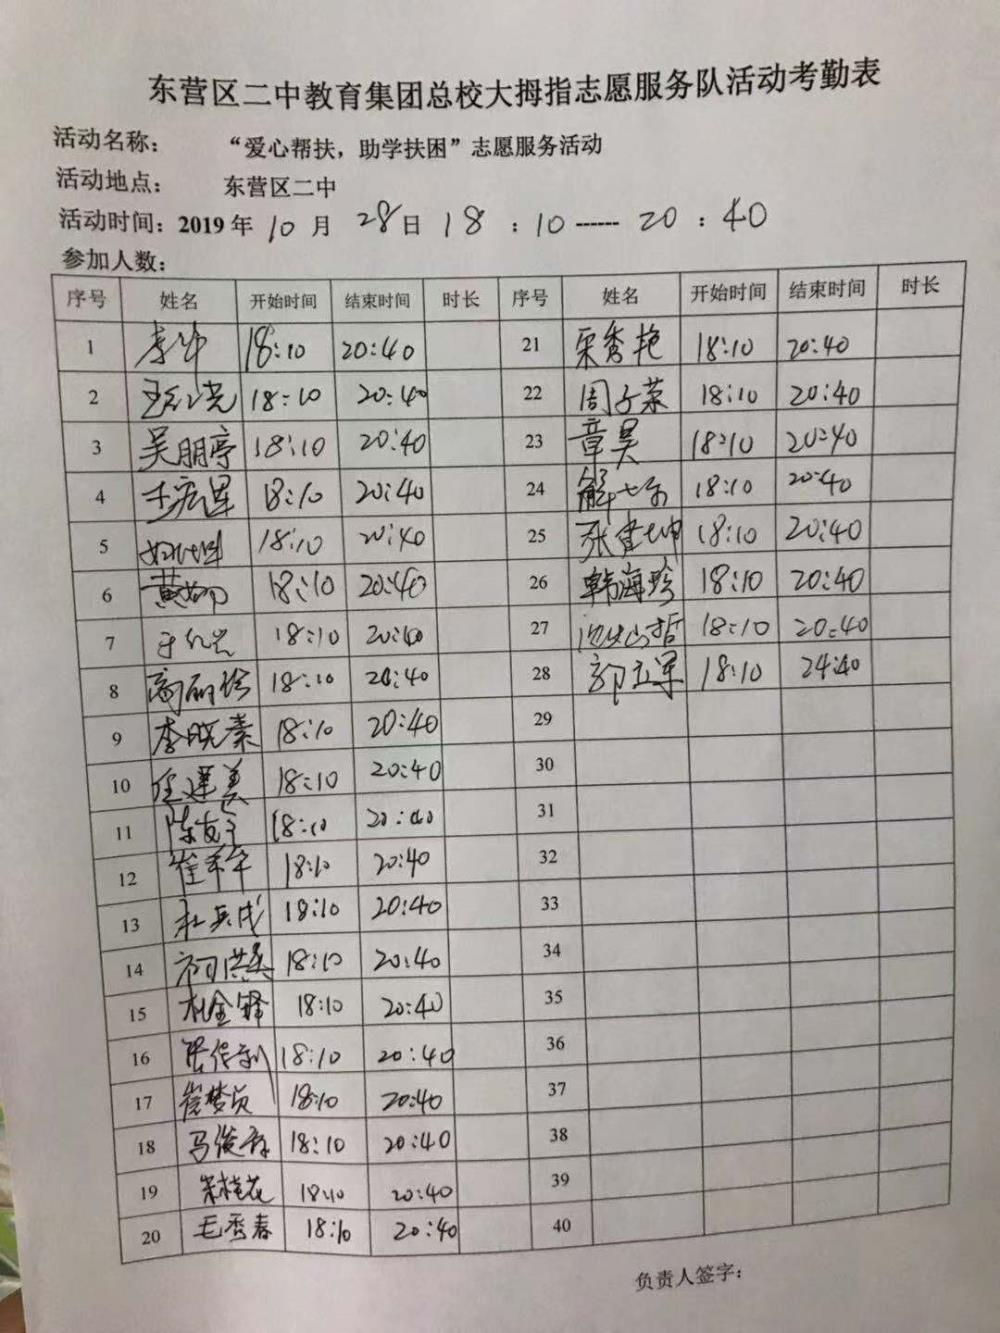 东营区二中教育集团总校大拇指志愿服务队活动考勤表
活动名称： “爱心帮扶，助学扶困”志愿服务活动
活动地点： 东营区二中
活动时间：2019年10月28日18：10------20：40
参加人数：
序号 姓名 开始时间 结束时间 时长 序号 姓名 开始时间 结束时间 时长
1 18:10 20:40 21 宋秀艳 18:10 20:40
2 18:10 20:40 22 周子荣 18:10 20:40
3 吴朋亭 18:10 20:40 23 章昊 18:10 20:40
4 18:10 20:40 24 18:10 20:40
5 18:10 20:40 25 张建坤 18:10 20:40
6 18:10 20:40 26 韩海珍 18:10 20:40
7 18:10 20:40 27 18:10 20:40
8 高丽珍 18:10 20:40 28 郭立军 18:10 24:40
9 李晓燕 18:10 20:40 29
10 任莲美 18:10 20:40 30
11 18:10 20:40 31
12 18:10 20:40 32
13 杜兵成 18:10 20:40 33
14 18:10 20:40 34
15 杜金锋 18:10 20:40 35
16 18:10 20:40 36
17 崔梦贞 18:10 20:40 37
18 18:10 20:40 38
19 朱桂花 18:10 20:40 39
20 毛秀春 18:10 20:40 40
负责人签字：